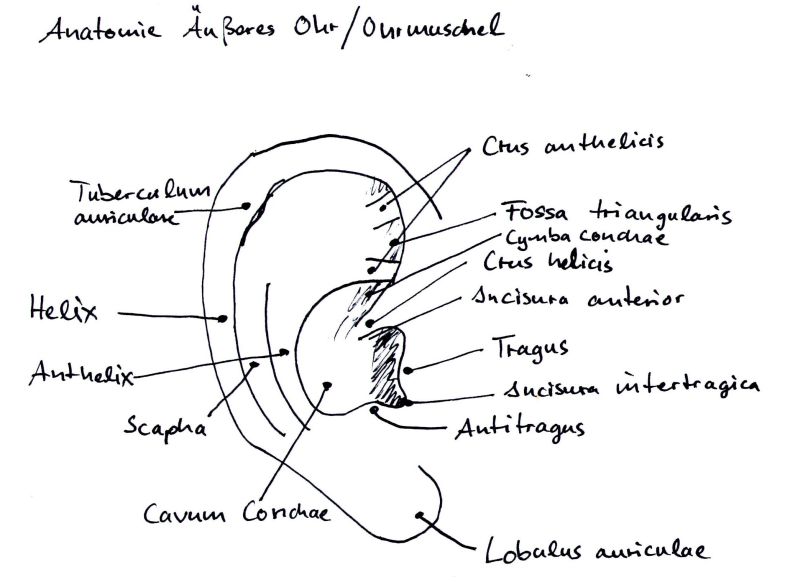 Anatomie Äußeres Ohr/Ohrmuschel
Crus anthelicis
Tuberculum
auriculare
Fossa triangularis
Cymba conchae
Crus helicis
Incisura anterior
Helix
Tragus
Anthelix
Incisura intertragica
Scapha
Antitragus
Cavum Conchae
Lobulus auriculae